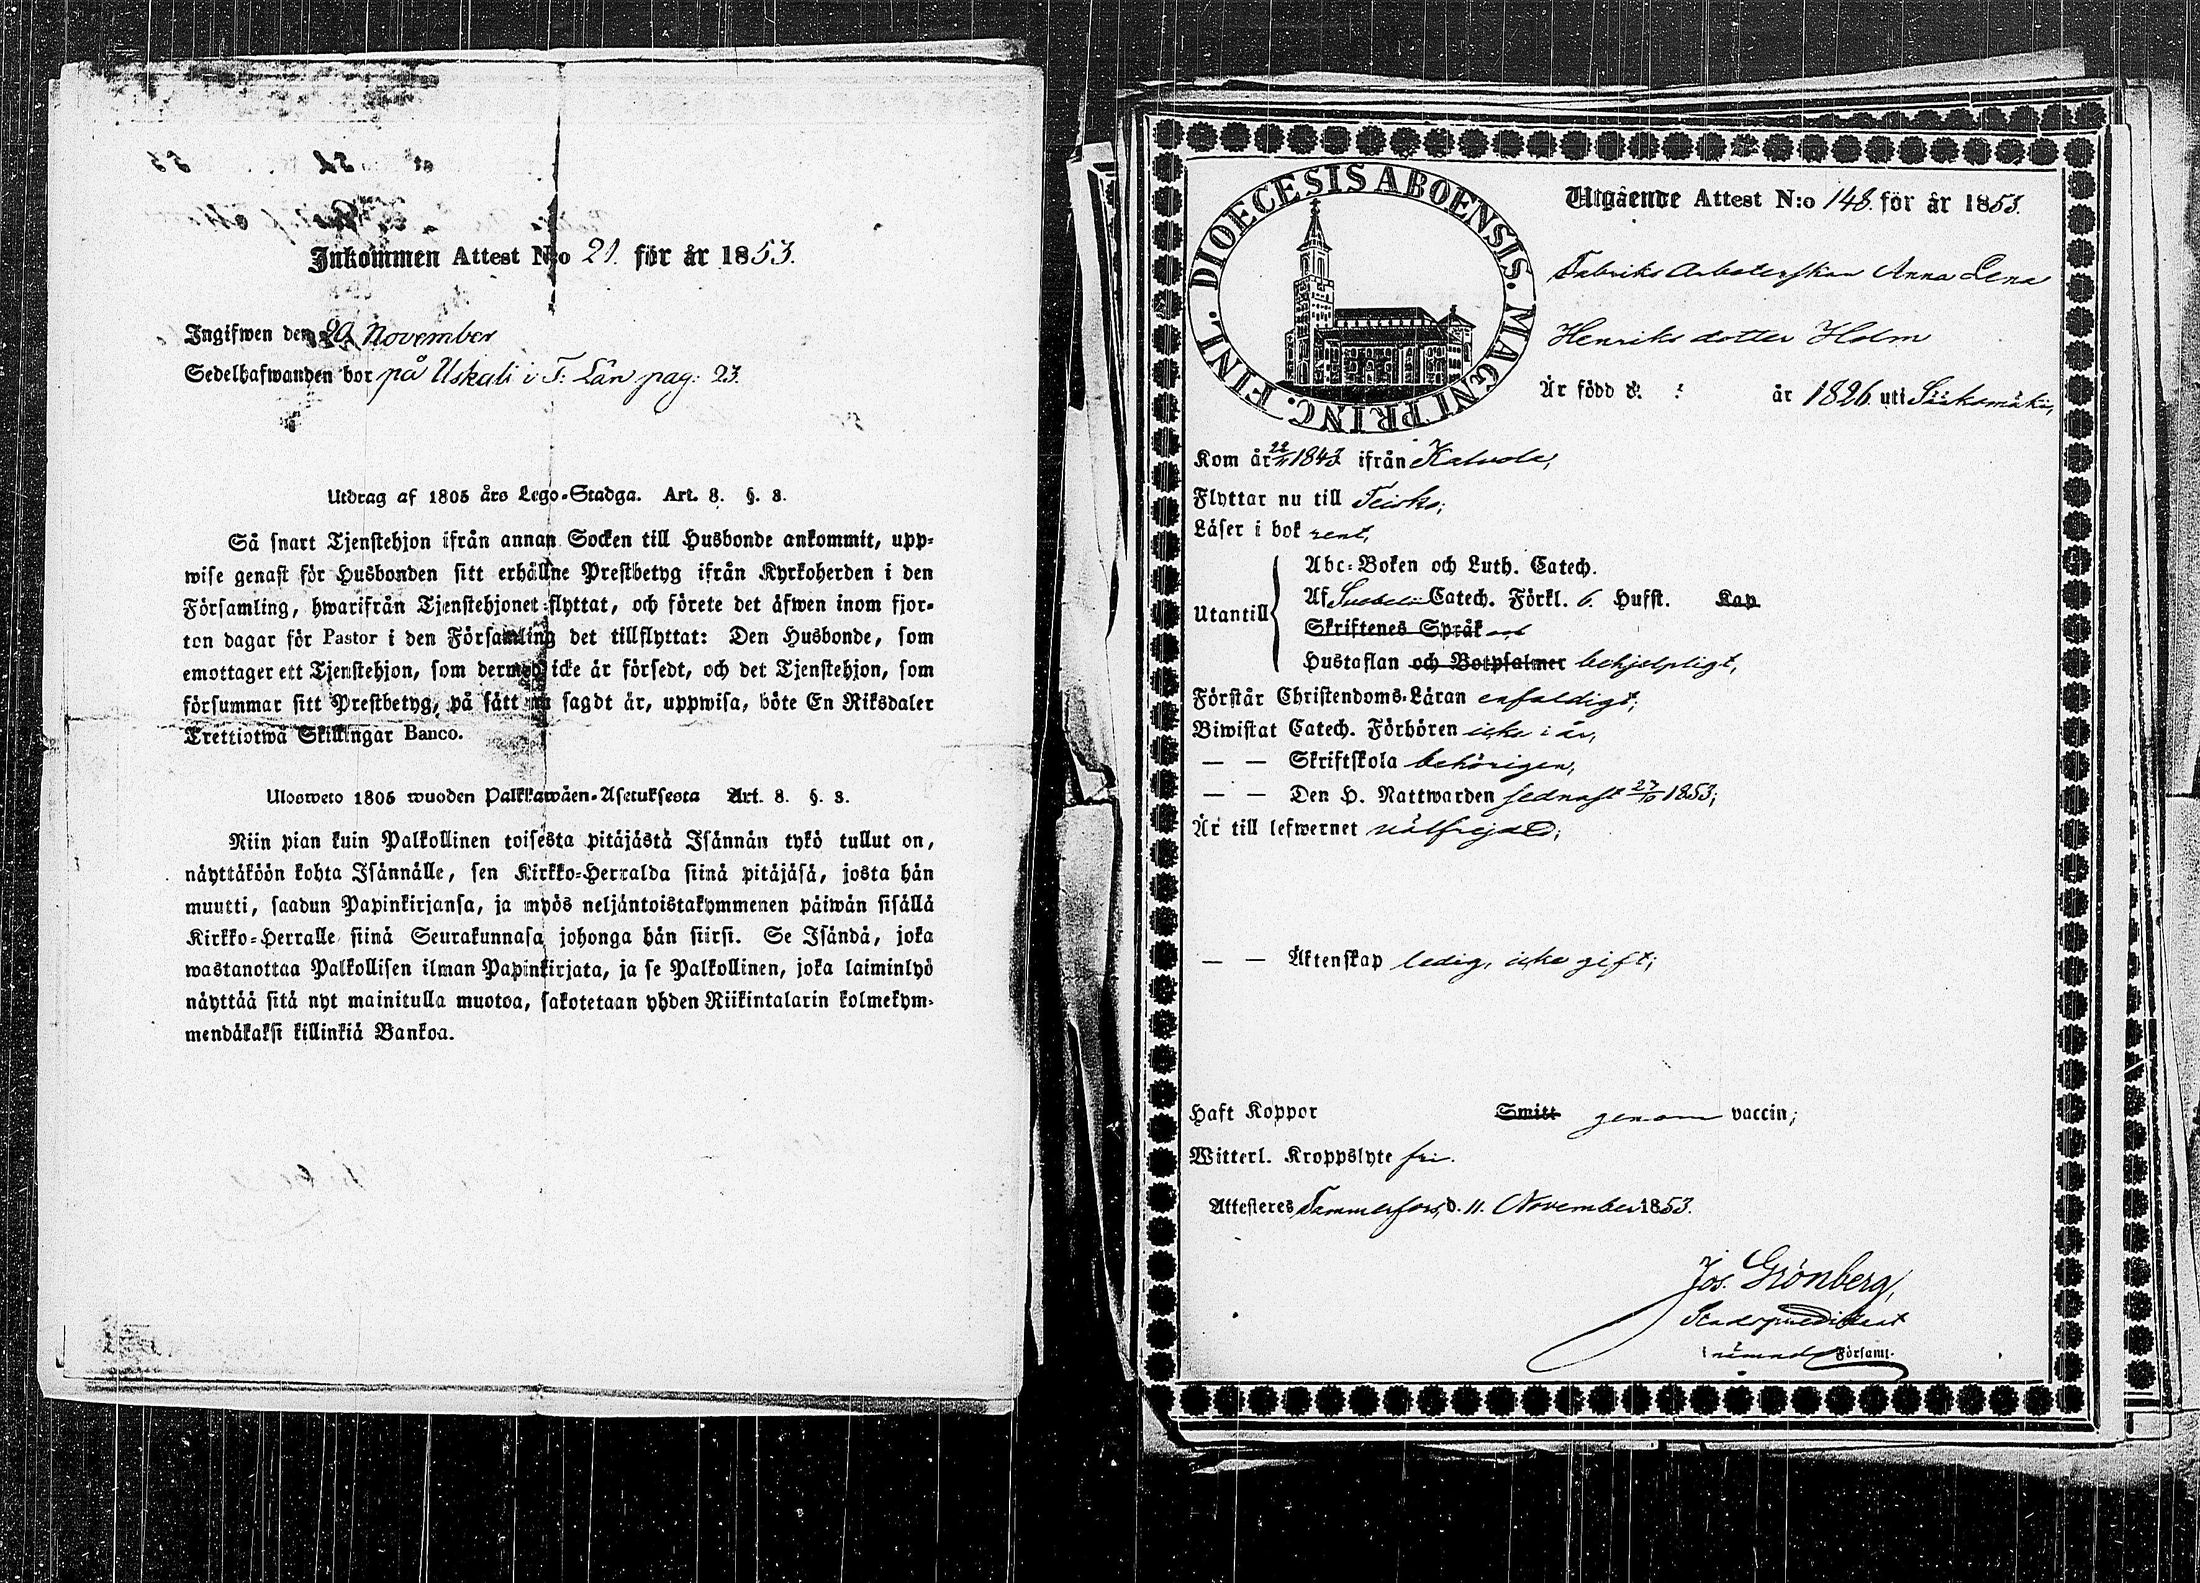 Inkommen Attest N:o 21. för år 1853.
Ingifwen den 20 November
Sedelhafwanden bor på Uskali i T: Län pag: 23.
Utdrag af 1805 års Lego-Stadga. Art. 8. §. 8.
Så snart Tjenstehjon ifrån annan Socken till Husbonde ankommit, upp-
wise genast för Husbonden sitt erhållne Prestbetyg ifrån Kyrkoherden i den
Församling, hwarifrån Tjenstehjonet flyttat, och förete det äfwen inom fjor-
ton dagar för Pastor i den Församling det tillflyttat: Den Husbonde, som
emottager ett Tjenstehjon, som dermed icke är försedt, och det Tjenstehjon, som
försummar sitt Prestbetyg, på sätt nu sagdt är, uppwisa, böte En Riksdaler
Trettiotwå Skillingar Banco.
Ulosweto 1805 wuoden Palkkawäen-Asetuksesta Art. 8. §. 8.
Niin pian kuin Palkollinen toisesta pitäjästä Isännän tykö tullut on,
näyttäköön kohta Isännälle, sen Kirkko-Herralda siinä pitäjäsä, josta hän
muutti, saadun Papinkirjansa, ja myös neljäntoistakymmenen päiwän sisällä
Kirkko-Herralle siinä Seurakunnasa johonga hän siirsi. Se Isändä, joka
wastanottaa Palkollisen ilman Papinkirjata, ja se Palkollinen, joka laiminlyö
näyttää sitä nyt mainitulla muotoa, sakotetaan yhden Riikintalarin kolmekym-
mendäkaksi killinkiä Bankoa.
DIOECESIS ABOENSIS. MAGNI PRINC. FINL.
Utgående Attest N:o 148. för år 1853.
Fabriks Arbeterskan Anna Lena
Henriksdotter Holm
Är född d. : år 1826. uti Sääksmäki,
Kom år 22/11 1843 ifrån Kalvola,
Flyttar nu till Teisko;
Läser i bok rent,
Utantill
Abc-Boken och Luth. Catech.
Af Svebelii Catech. Förkl. 6. Hufst. Kap
Skriftenes Språk och
Hustaflan och Botpsalmer behjelpligt,
Förstår Christendoms-Läran enfaldigt;
Biwistat Catech. Förhören icke i år,
— — Skriftskola behörigen,
— — Den H. Nattwarden sednast 27/10 1853;
Är till lefwernet välfrejdad;
— — Äktenskap ledig, icke gift;
Haft Koppor Smitt genom vaccin;
Witterl. Kroppslyte fri.
Attesteres Tammerfors, d. 11. November 1853.
Jos. Grönberg,
Stadspredikant
i nämnde Församl.